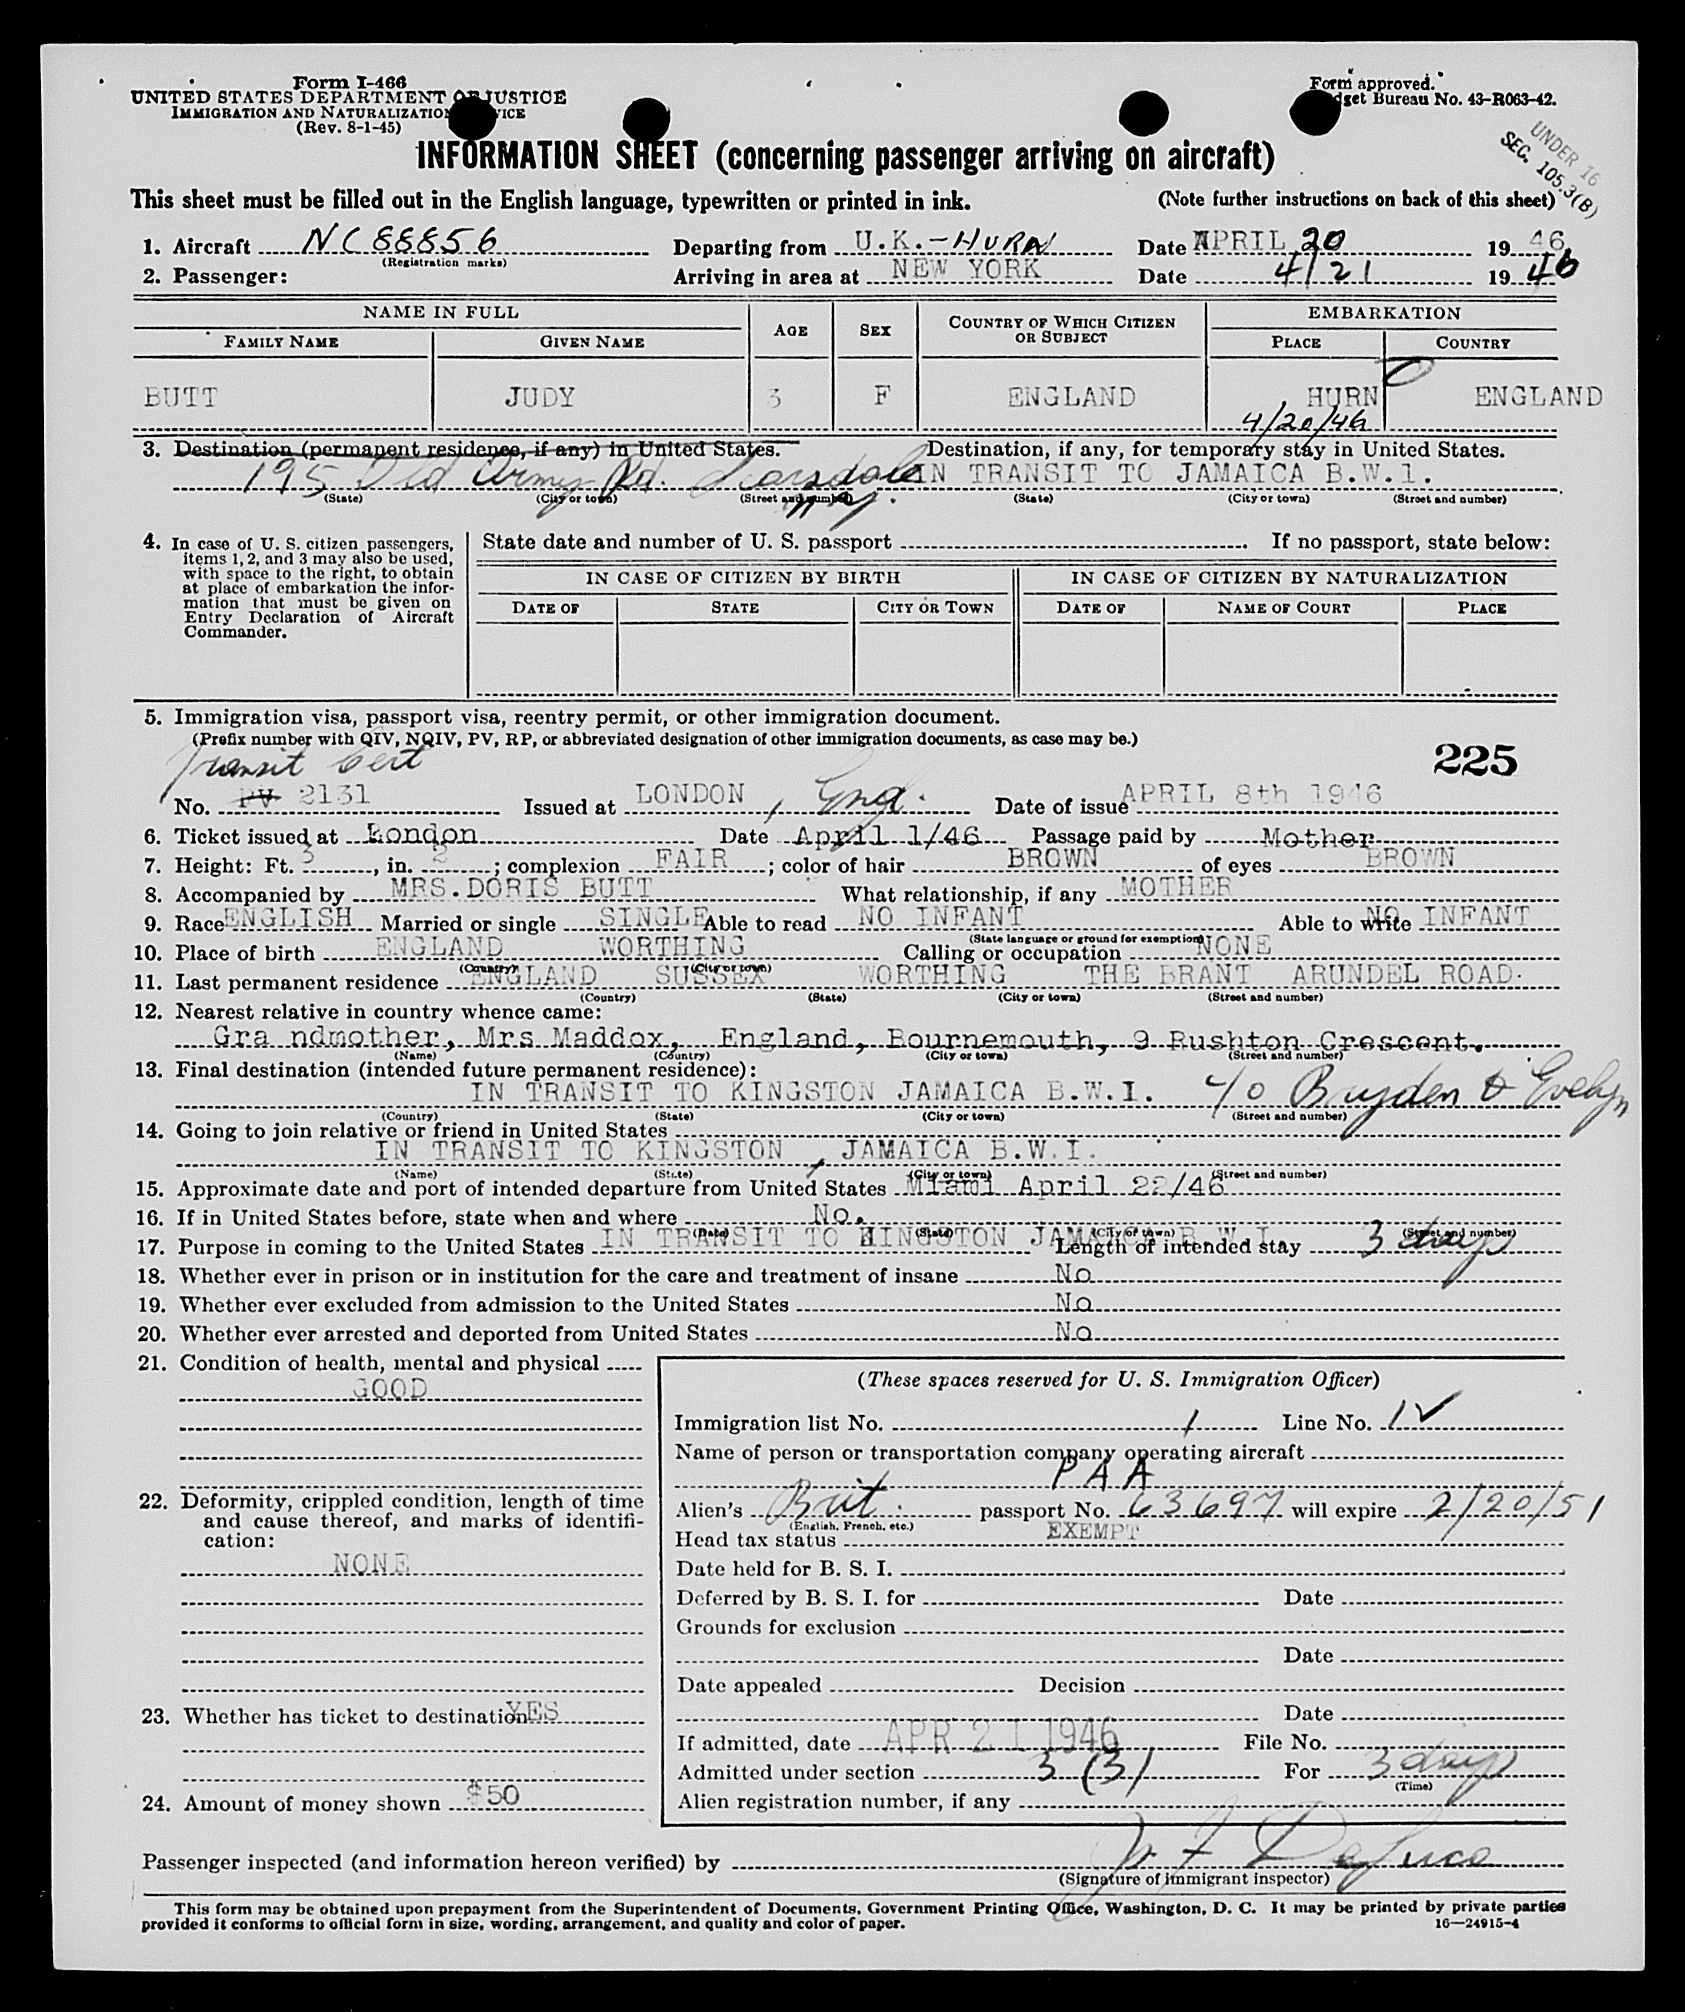 Form I-466
UNITED STATES DEPARTMENT OF JUSTICE
IMMIGRATION AND NATURALIZATION SERVICE
(Rev. 8-1-45)
Form approved.
Budget Bureau No. 43-R063-42.
UNDER 16
SEC. 105.3(B)
INFORMATION SHEET (concerning passenger arriving on aircraft)
This sheet must be filled out in the English language, typewritten or printed in ink. (Note further instructions on back of this sheet)
1. Aircraft NC 88856 Departing from U.K.-HURN Date APRIL 20 1946
(Registration marks)
2. Passenger: Arriving in area at NEW YORK Date 4/21 1946
NAME IN FULL AGE SEX COUNTRY OF WHICH CITIZEN OR SUBJECT EMBARKATION
FAMILY NAME GIVEN NAME PLACE COUNTRY
BUTT JUDY 3 F ENGLAND HURN ENGLAND
4/20/46
3. Destination (permanent residence, if any) in United States. Destination, if any, for temporary stay in United States.
195 Old Army Rd. Scarsdale N.Y. IN TRANSIT TO JAMAICA B.W.I.
(State) (City or town) (Street and number) (State) (City or town) (Street and number)
4. In case of U. S. citizen passengers, items 1, 2, and 3 may also be used, with space to the right, to obtain at place of embarkation the information that must be given on Entry Declaration of Aircraft Commander.
State date and number of U. S. passport . If no passport, state below:
IN CASE OF CITIZEN BY BIRTH IN CASE OF CITIZEN BY NATURALIZATION
DATE OF STATE CITY OR TOWN DATE OF NAME OF COURT PLACE
5. Immigration visa, passport visa, reentry permit, or other immigration document.
(Prefix number with QIV, NQIV, PV, RP, or abbreviated designation of other immigration documents, as case may be.)
225
Transit Cert
No. PV 2131 Issued at LONDON, Eng. Date of issue APRIL 8th 1946
6. Ticket issued at London Date April 1/46 Passage paid by Mother
7. Height: Ft. 3, in. 2; complexion FAIR; color of hair BROWN of eyes BROWN
8. Accompanied by MRS. DORIS BUTT What relationship, if any MOTHER
9. Race ENGLISH Married or single SINGLE Able to read NO INFANT Able to write NO INFANT
(State language or ground for exemption)
10. Place of birth ENGLAND WORTHING Calling or occupation NONE
(Country) (City or town)
11. Last permanent residence ENGLAND SUSSEX WORTHING THE BRANT ARUNDEL ROAD.
(Country) (State) (City or town) (Street and number)
12. Nearest relative in country whence came:
Gra ndmother, Mrs Maddox, England, Bournemouth, 9 Rushton Crescent.
(Name) (Country) (City or town) (Street and number)
13. Final destination (intended future permanent residence):
IN TRANSIT TO KINGSTON JAMAICA B.W.I. c/o Bayden & Evelyn
(Country) (State) (City or town) (Street and number)
14. Going to join relative or friend in United States
IN TRANSIT TO KINGSTON, JAMAICA B.W.I.
(Name) (State) (City or town) (Street and number)
15. Approximate date and port of intended departure from United States Miami April 22/46
16. If in United States before, state when and where No.
(Date) (State) (City or town) (Street and number)
17. Purpose in coming to the United States IN TRANSIT TO KINGSTON JAMAICA B.W.I. Length of intended stay 3 days
18. Whether ever in prison or in institution for the care and treatment of insane No
19. Whether ever excluded from admission to the United States No
20. Whether ever arrested and deported from United States No
21. Condition of health, mental and physical
GOOD
22. Deformity, crippled condition, length of time and cause thereof, and marks of identification:
NONE
23. Whether has ticket to destination YES
24. Amount of money shown $50
(These spaces reserved for U. S. Immigration Officer)
Immigration list No. 1 Line No. 1 ✓
Name of person or transportation company operating aircraft
PAA
Alien's Brit. passport No. 63697 will expire 2/20/51
(English, French, etc.)
Head tax status EXEMPT
Date held for B. S. I.
Deferred by B. S. I. for Date
Grounds for exclusion
Date
Date appealed Decision
Date
If admitted, date APR 21 1946 File No.
Admitted under section 3 (3) For 3 days
(Time)
Alien registration number, if any
Passenger inspected (and information hereon verified) by
(Signature of immigrant inspector)
This form may be obtained upon prepayment from the Superintendent of Documents, Government Printing Office, Washington, D. C. It may be printed by private parties
provided it conforms to official form in size, wording, arrangement, and quality and color of paper. 16—24915-4